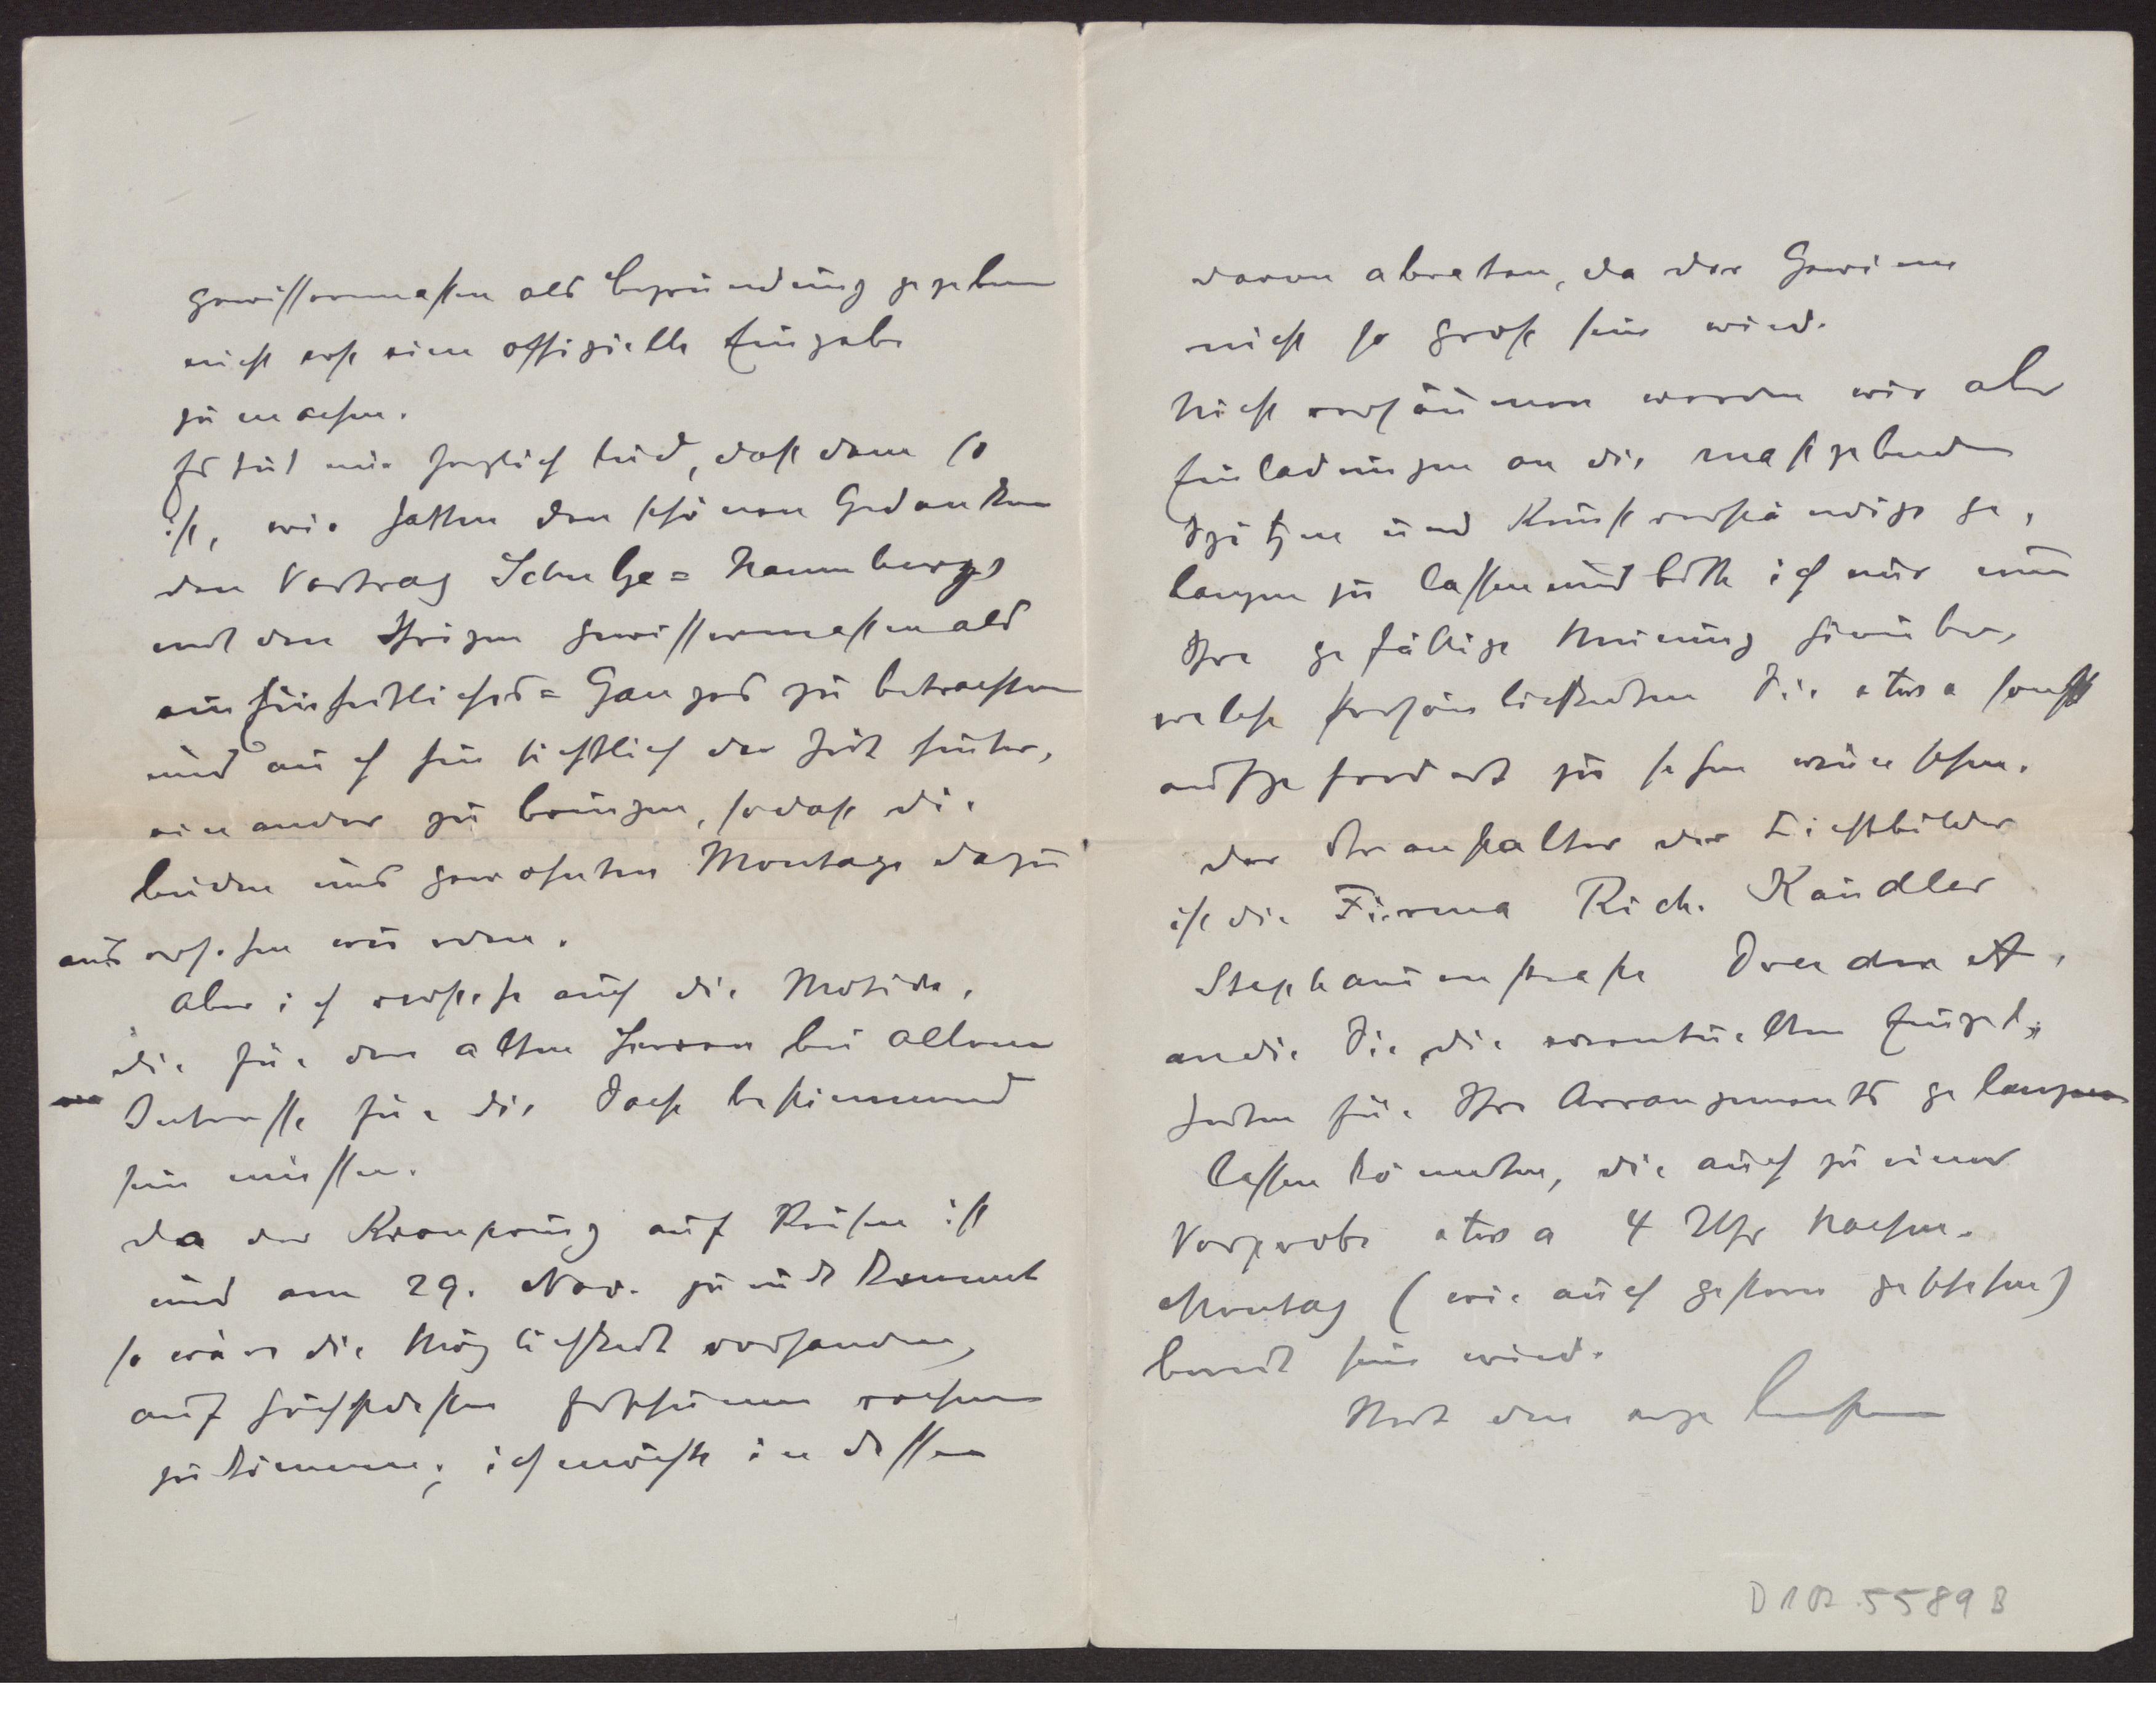 gewissermaßen als Begründung gegeben
nicht erst eine offizielle Eingabe
zu machen.
Es tut mir herzlich leid, daß dem so
ist, wir hatten den schönen Gedanken
den Vortrag Schulze=Naumburgs
mit dem Ihrigen gewissermaßen als
ein Einheitliches=Ganzes zu betrachten
und auch hinsichtlich der Zeit hinter,
einander zu bringen, sodaß die
beiden uns gewohnten Montage dazu
ausersehen wurden.
Aber ich verstehe auch die Motive,
die für den alten Herren bei allem
Interesse für die Sache bestimmend
sein müssen.
Da der Kronprinz auf Reisen ist
und am 29. Nov. zurück kommt
so wäre die Möglichkeit vorhanden,
auf höchstdessen Erscheinen rechnen
zu können; ich möchte indessen
davon abraten, da der Gewinn
nicht so groß sein wird.
Nicht versäumen werden wir aber
Einladungen an die maßgebenden
Spitzen und Kunstverständige ge,
langen zu lassen und bitte ich mir nun
Ihre gefällige Meinung hierüber,
welche Persönlichkeiten Sie etwa sonst
aufgefordert zu sehen wünschen.
Der Veranstalter der Lichtbilder
ist die Firma Rich. Kändler
Stephanienstraße Dresden A,
an die Sie die eventuellen Einzel,
heiten für Ihre Arrangements gelangen
lassen könnten, die auch zu einer
Vorprobe etwa 4 Uhr Nachm.
Montag (wie auch gestern geschehen)
bereit sein wird.
Mit den ergebensten
D 102.5589 B